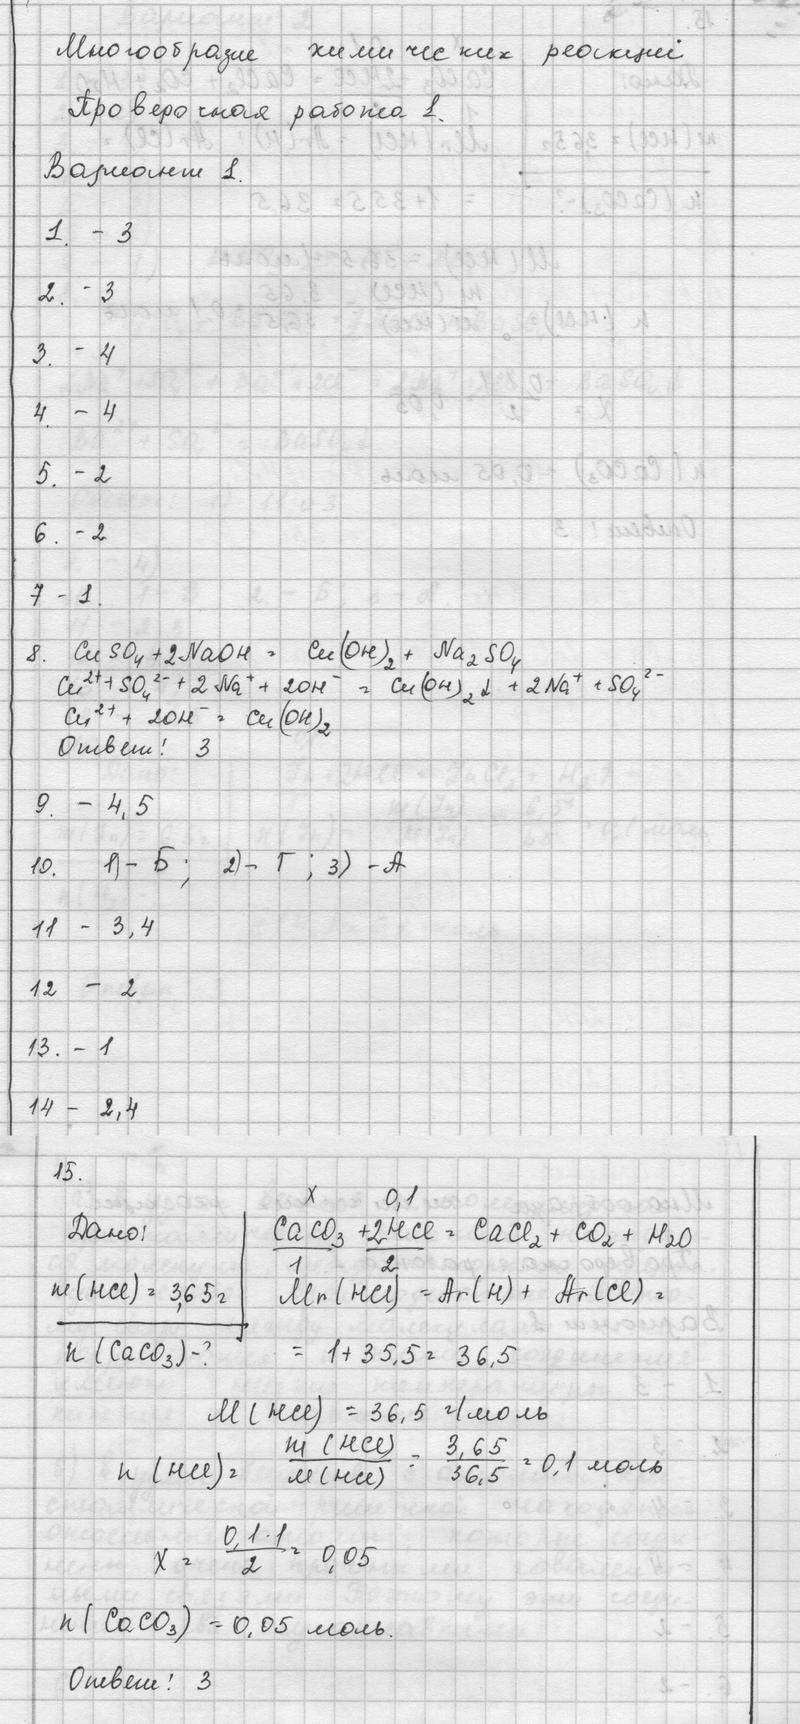 Многообразие химических реакций
Проверочная работа 1.
Вариант 1.
1. - 3
2. - 3
3. - 4
4. - 4
5. - 2
6. - 2
7 - 1.
8. CuSO₄ + 2NaOH = Cu(OH)₂ + Na₂SO₄
Cu²⁺ + SO₄²⁻ + 2Na⁺ + 2OH⁻ = Cu(OH)₂↓ + 2Na⁺ + SO₄²⁻
Cu²⁺ + 2OH⁻ = Cu(OH)₂
Ответ: 3
9. - 4,5
10. 1) - Б; 2) - Г; 3) - А
11 - 3,4
12 - 2
13. - 1
14 - 2,4
15.
x 0,1
Дано: CaCO₃ + 2HCl = CaCl₂ + CO₂ + H₂O
1 2
m(HCl) = 3,65г Mr(HCl) = Ar(H) + Ar(Cl) =
n(CaCO₃) - ? = 1 + 35,5 = 36,5
M(HCl) = 36,5 г/моль
n(HCl) = m(HCl)/M(HCl) = 3,65/36,5 = 0,1 моль
x = 0,1·1/2 = 0,05
n(CaCO₃) = 0,05 моль.
Ответ: 3